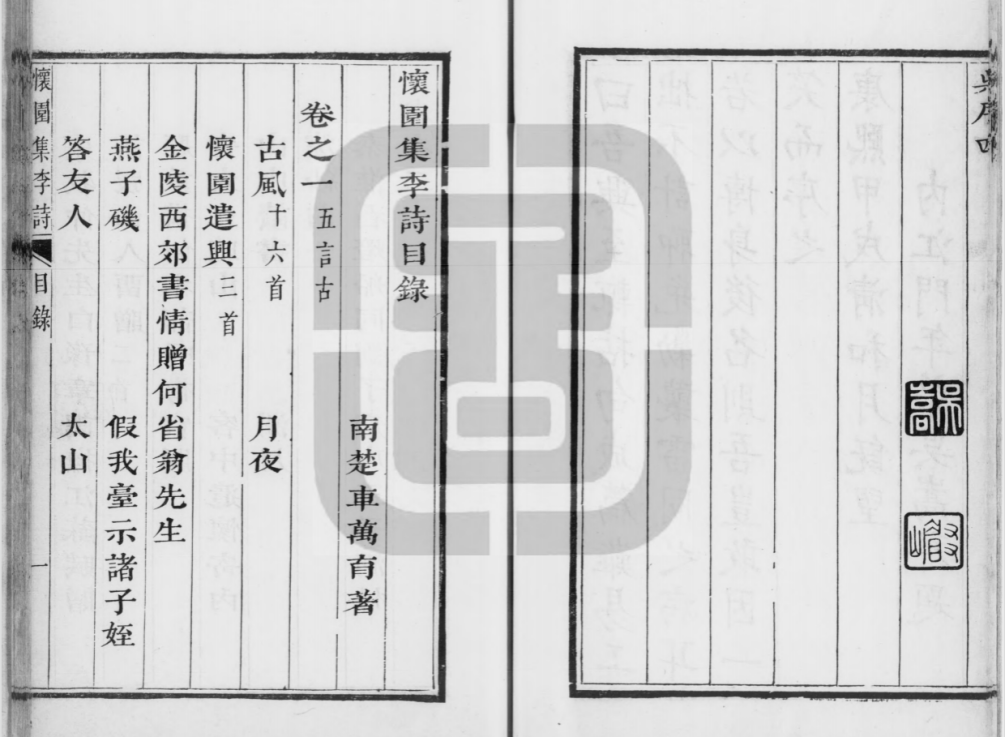 懷園集李詩目錄
南楚車萬育著
卷之一 五言古
古風十六首 月夜
懷園遣興三首
金陵西郊書情贈何省翁先生
燕子磯 假我臺示諸子姪
答友人 太山
懷園集李詩 目錄 一